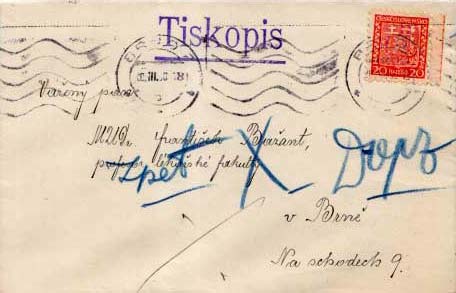 Tiskopis
ČESKOSLOVENSKO
20 20
Vážený pane
MUDr. František Bažant,
profesor lékařské fakulty
zpět X Dopz
v Brně
Na schodech 9.